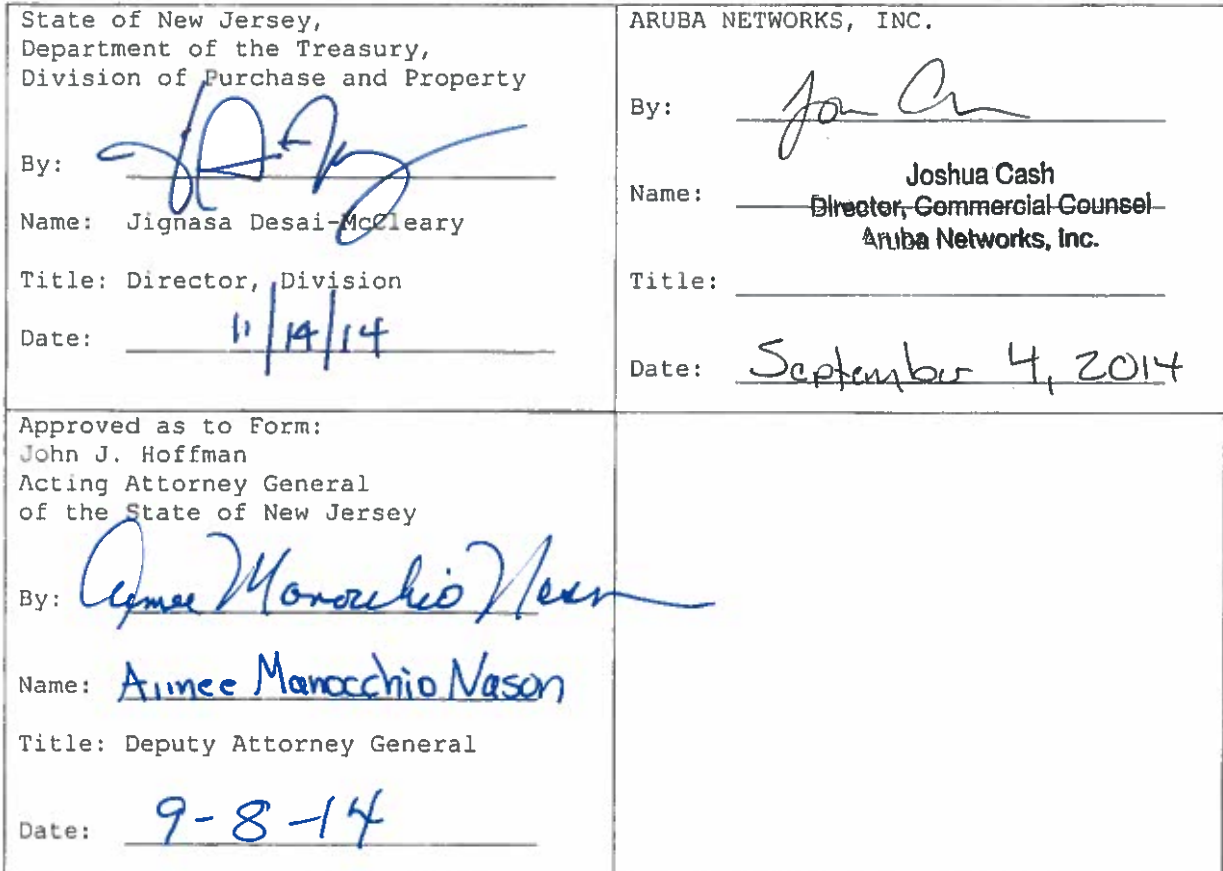 State of New Jersey,
Department of the Treasury,
Division of Purchase and Property
By:
Name: Jignasa Desai-McCleary
Title: Director, Division
Date: 11/14/14
ARUBA NETWORKS, INC.
By:
Name: Joshua Cash
Director, Commercial Counsel
Aruba Networks, Inc.
Title:
Date: September 4, 2014
Approved as to Form:
John J. Hoffman
Acting Attorney General
of the State of New Jersey
By: Aimee Manocchio Nason
Name: Aimee Manocchio Nason
Title: Deputy Attorney General
Date: 9-8-14